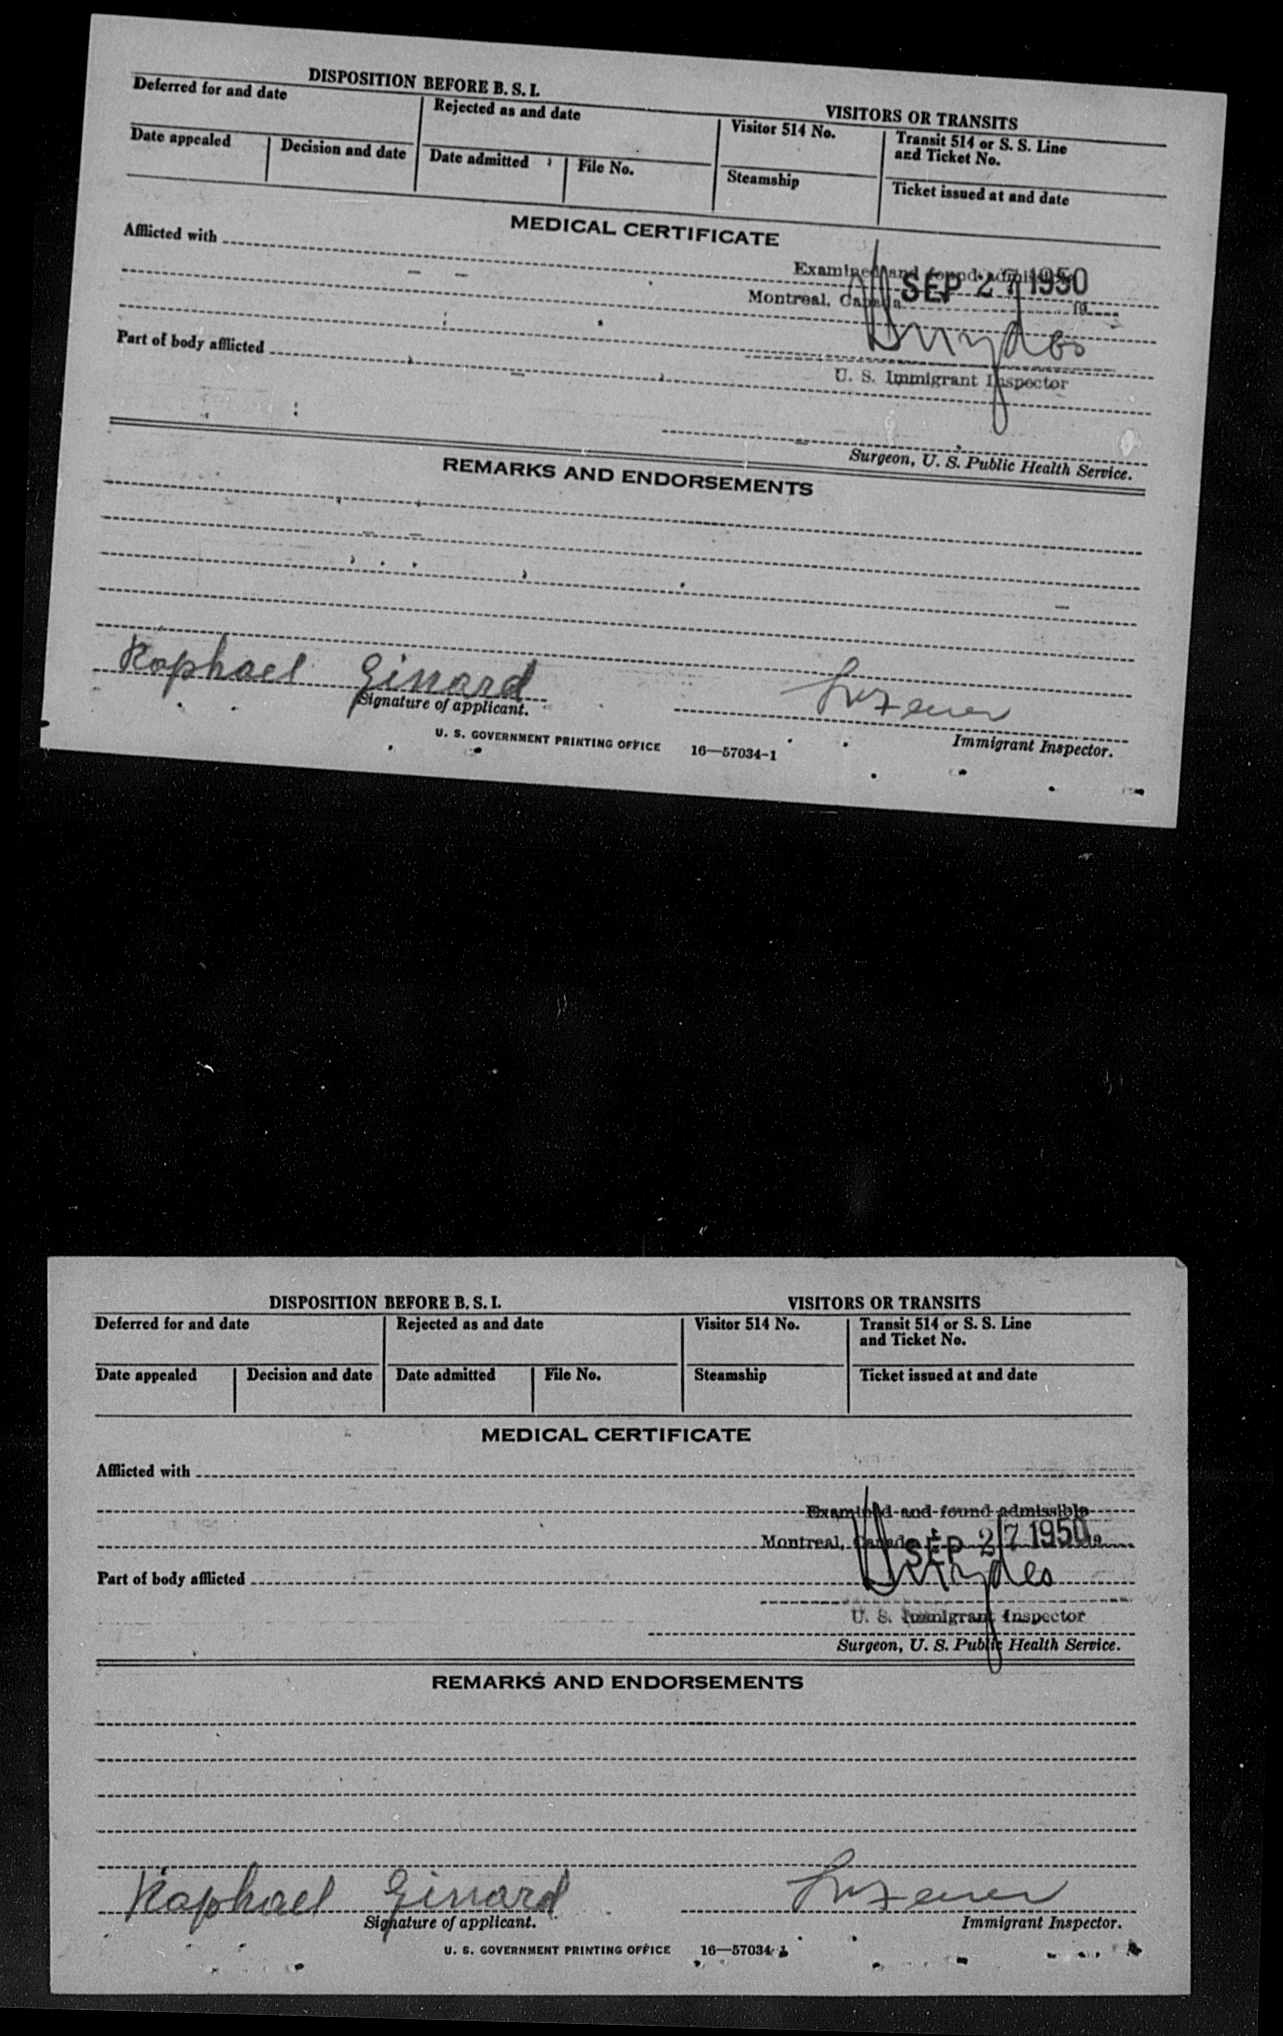 DISPOSITION BEFORE B. S. I. VISITORS OR TRANSITS
Deferred for and date Rejected as and date Visitor 514 No. Transit 514 or S. S. Line and Ticket No.
Date appealed Decision and date Date admitted File No. Steamship Ticket issued at and date
MEDICAL CERTIFICATE
Afflicted with
Examined and found admissible
Montreal, Canada SEP 27 1950 19
Part of body afflicted
U. S. Immigrant Inspector
Surgeon, U. S. Public Health Service.
REMARKS AND ENDORSEMENTS
Raphael Ginard
Signature of applicant. Immigrant Inspector.
U. S. GOVERNMENT PRINTING OFFICE 16—57034-1
DISPOSITION BEFORE B. S. I. VISITORS OR TRANSITS
Deferred for and date Rejected as and date Visitor 514 No. Transit 514 or S. S. Line and Ticket No.
Date appealed Decision and date Date admitted File No. Steamship Ticket issued at and date
MEDICAL CERTIFICATE
Afflicted with
Examined and found admissible
Montreal, Canada SEP 27 1950 19
Part of body afflicted
U. S. Immigrant Inspector
Surgeon, U. S. Public Health Service.
REMARKS AND ENDORSEMENTS
Raphael Ginard
Signature of applicant. Immigrant Inspector.
U. S. GOVERNMENT PRINTING OFFICE 16—57034-1